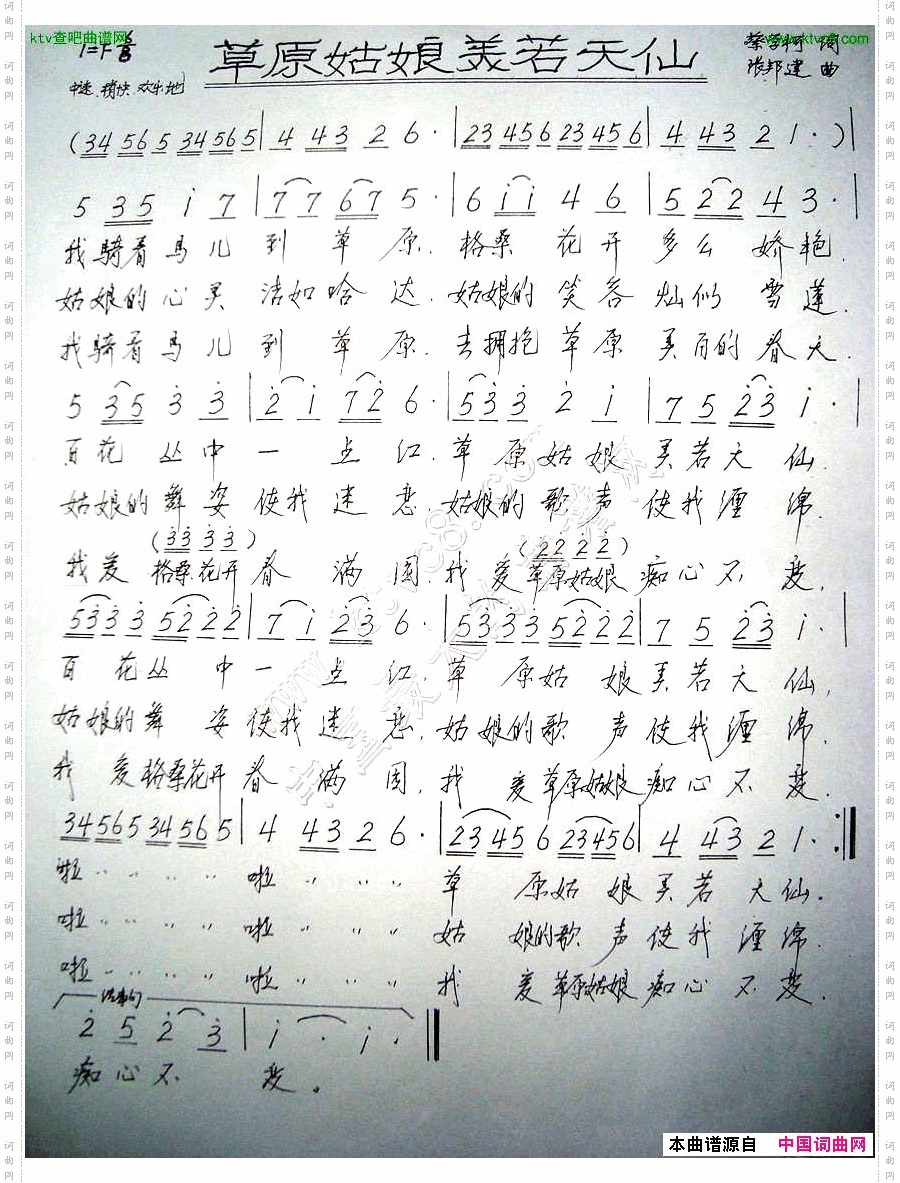 ktv查吧曲谱网
草原姑娘美若天仙
1=F 6/8
词
张邦建 曲
中速 稍快 欢乐地
(34 56 5 34 56 5|4 43 2 6·|23 456 23 456|4 43 2 1·)|
5 35 i 7|7 7 67 5·|6 ii 4 6|5 22 4 3·|
我骑着马儿到草原.格桑花开多么娇艳.
姑娘的心灵洁如哈达.姑娘的笑容灿似雪莲
我骑着马儿到草原.去拥抱草原美丽的春天.
5 35 3 3|2 i 72 6·|533 2 i|7 5 23 i·|
百花丛中一点红.草原姑娘美若天仙.
姑娘的舞姿使我迷恋.姑娘的歌声使我缠绵.
(33 33) (22 22)
我爱格桑花开春满园.我爱草原姑娘痴心不变.
5333 5222|7 i 23 6·|5333 5222|7 5 23 i·|
百花丛中一点红.草原姑娘美若天仙.
姑娘的舞姿使我迷恋.姑娘的歌声使我缠绵.
我爱格桑花开春满园,我爱草原姑娘痴心不变.
34565 34565|4 43 2 6·|23456 23456|4 43 2 1·:‖
啦 〃 〃 〃 〃 啦 〃 〃 〃 草原姑娘美若天仙.
啦 〃 〃 〃 〃 啦 〃 〃 〃 姑娘的歌声使我缠绵.
啦 〃 〃 〃 〃 啦 〃 〃 〃 我爱草原姑娘痴心不变.
结束句
2 5 2 3|i· i·‖
痴心不变。
本曲谱源自 中国词曲网
词曲网